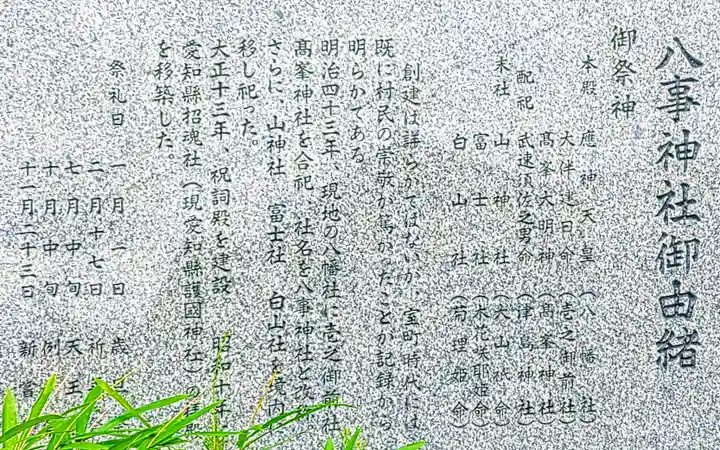 八事神社御由緒
御祭神
本殿 應神天皇（八幡社）
大伴連日命（壱之御前社）
髙峯大明神（髙峯神社）
配祀 武速須佐之男命（津島神社）
末社 山神社（大山祇命）
富士社（木花咲耶姫命）
白山社（菊理姫命）
創建は詳らかではないが、室町時代には
既に村民の崇敬が篤かったことが記録から
明らかである。
明治四十三年、現地の八幡社に壱之御前社
髙峯神社を合祀 社名を八事神社と改称
さらに、山神社 富士社 白山社を境内
移し祀った。
大正十三年、祝詞殿を建設 昭和十年
愛知縣招魂社（現愛知縣護國神社）の拝殿
を移築した。
祭礼日 一月一日 歳
二月十七日 祈
七月中旬 天王
十月中旬 例
十一月二十三日 新嘗